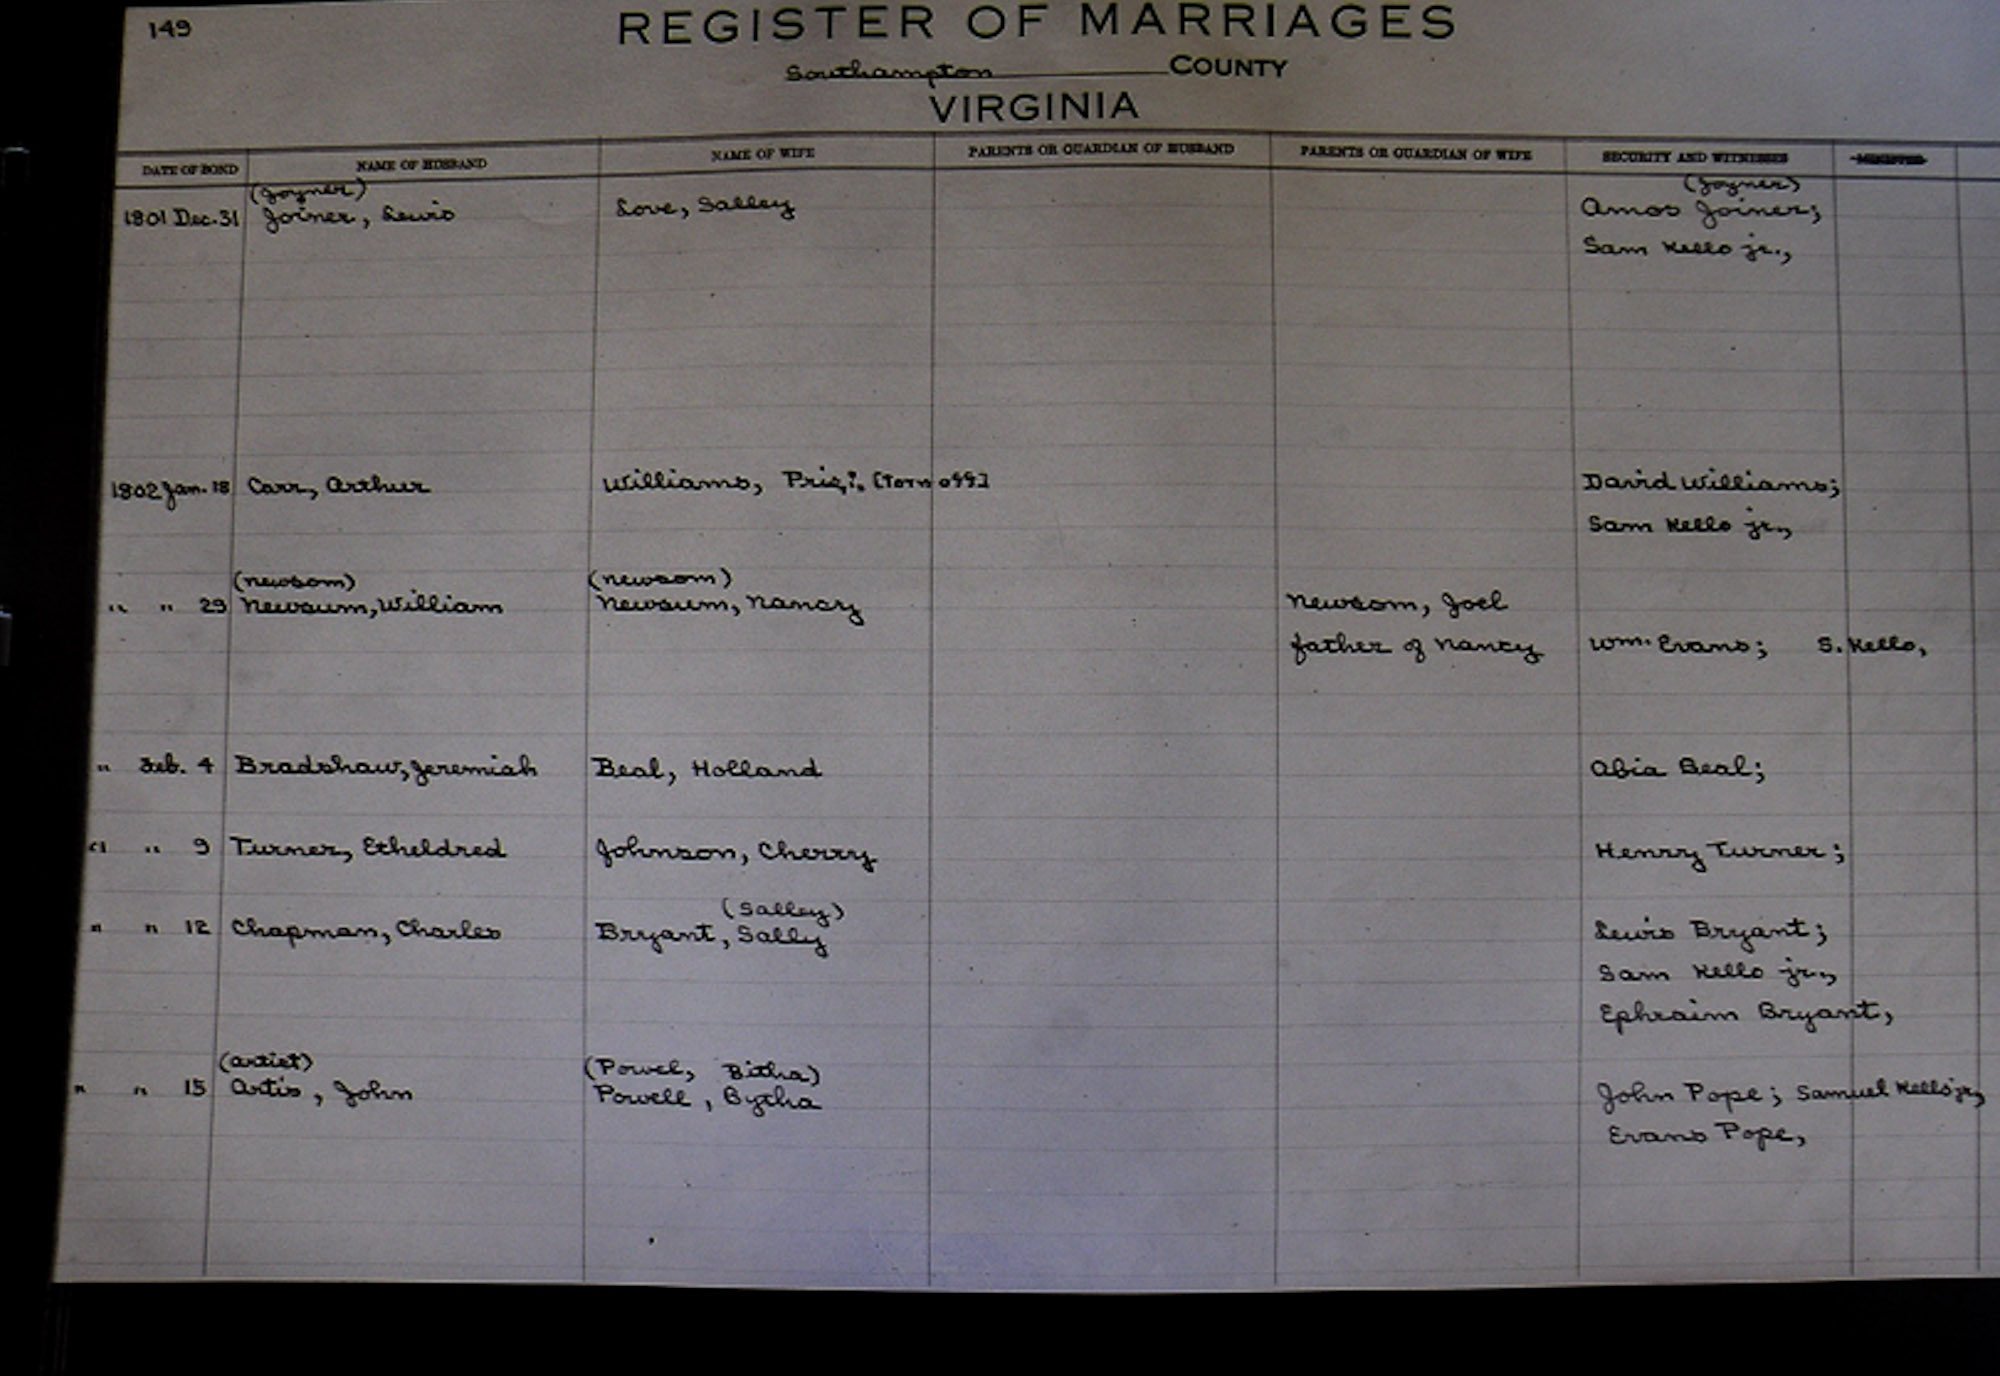 149
REGISTER OF MARRIAGES
Southampton COUNTY
VIRGINIA
DATE OF BOND NAME OF HUSBAND NAME OF WIFE PARENTS OR GUARDIAN OF HUSBAND PARENTS OR GUARDIAN OF WIFE SECURITY AND WITNESSES MINISTER
(Joyner) (Joyner)
1801 Dec. 31 Joiner, Lewis Love, Salley Amos Joiner;
Sam Kello jr.,
1802 Jan. 18 Carr, Arthur Williams, Pris?. [torn off] David Williams;
Sam Kello jr.,
(Newsom) (Newsom)
" " 29 Newsum, William Newsum, Nancy Newsom, Joel
father of Nancy Wm. Evans; S. Kello,
" Feb. 4 Bradshaw, Jeremiah Beal, Holland Abia Beal;
" " 9 Turner, Etheldred Johnson, Cherry Henry Turner;
(Salley)
" " 12 Chapman, Charles Bryant, Sally Lewis Bryant;
Sam Kello jr.,
Ephraim Bryant,
(Artist) (Powel, Bitha)
" " 15 Artis, John Powell, Bytha John Pope; Samuel Kello jr,
Evans Pope,